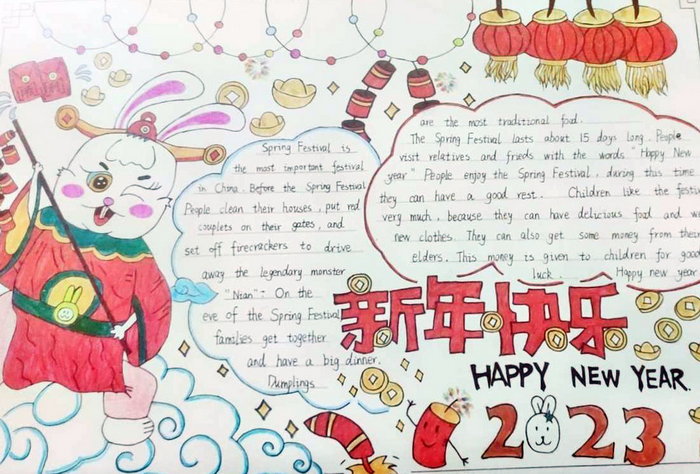 Spring Festival is
the most important festival
in China. Before the Spring Festival
People clean their houses, put red
couplets on their gates, and
set off firecrackers to drive
away the legendary monster
"Nian". On the
eve of the Spring Festival
families get together
and have a big dinner.
Dumplings
are the most traditional food.
The Spring Festival lasts about 15 days long. People
visit relatives and frieds with the words "Happy New
year" People enjoy the Spring Festival, daring this time
they can have a good rest. Children like the festi
very much, because they can have delicious food and
new clothes. They can also get some money from their
elders. This money is given to children for good
luck. Happy new year
新年快乐
HAPPY NEW YEAR.
2023